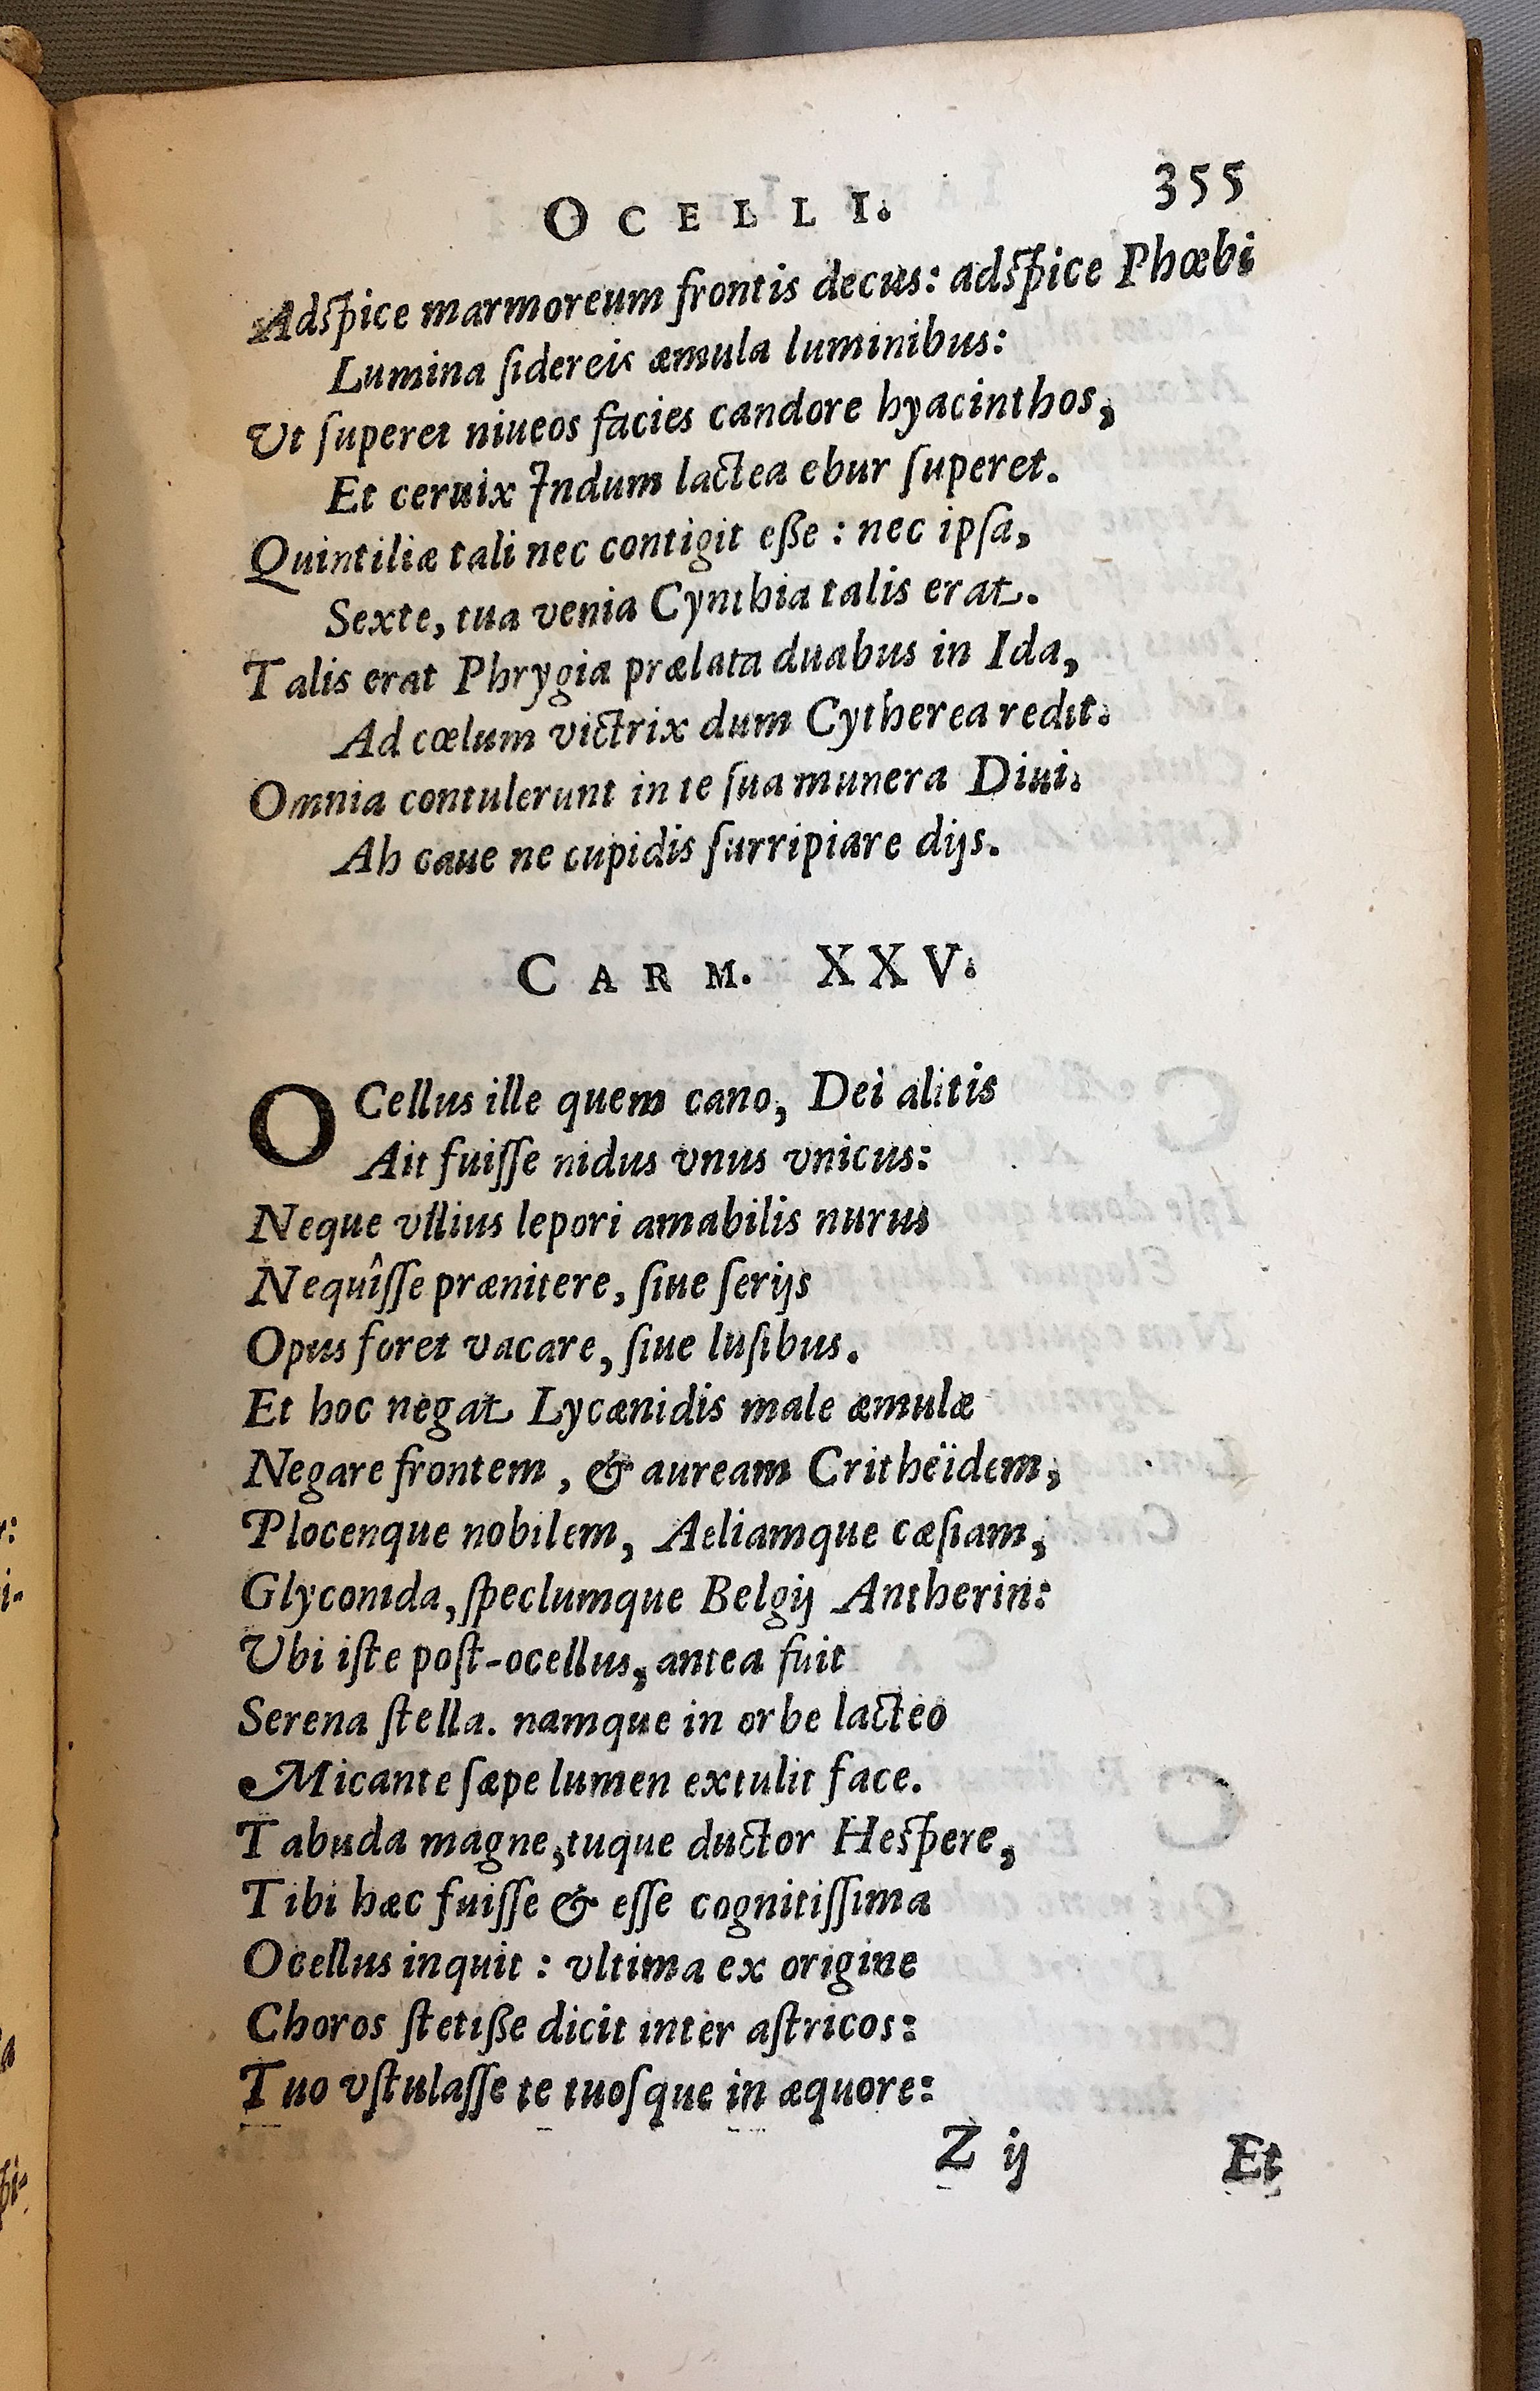 OCELLI. 355
Adspice marmoreum frontis decus: adspice Phœbi
Lumina ſidereis æmula luminibus:
Ut ſuperet niueos facies candore hyacinthos,
Et ceruix Indum lactea ebur ſuperet.
Quintiliæ tali nec contigit eßе : nec ipſa,
Sexte, tua venia Cynthia talis erat.
Talis erat Phrygia prælata duabus in Ida,
Ad cœlum victrix dum Cytherea redit.
Omnia contulerunt in te ſua munera Diui.
Ah caue ne cupidis ſurripiare dijs.
CARM. XXV.
OCellus ille quem cano, Dei alitis
Ait fuiſſe nidus vnus vnicus:
Neque vllius lepori amabilis nurus
Nequîſſe prænitere, ſiue ſerijs
Opus foret vacare, ſiue luſibus.
Et hoc negat Lycænidis male æmulæ
Negare frontem, & auream Critheïdem,
Plocenque nobilem, Aeliamque cæſiam,
Glyconida, ſpeclumque Belgij Antherin:
Vbi iſte poſt-ocellus, antea fuit
Serena ſtella. namque in orbe lacteo
Micante ſæpe lumen extulit face.
Tabuda magne, tuque ductor Heſpere,
Tibi hæc fuiſſe & eſſe cognitiſſima
Ocellus inquit : vltima ex origine
Choros ſtetiße dicit inter aſtricos:
Tuo vſtulaſſe te tuoſque in æquore:
Z ij Et